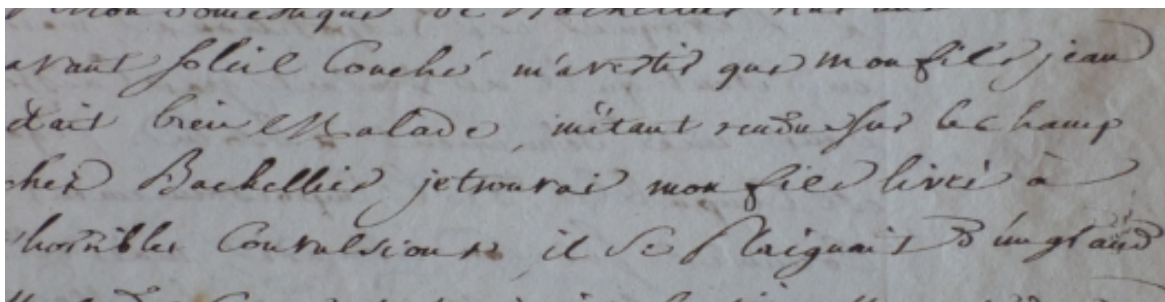 mon domestique de Bachellier
avant soleil Couché m'avertir que mon fils jean
était bien Malade, m'étant rendu sur le champ
chez Bachellier je trouvai mon fils livré à
horribles Convulsions, il se Plaignait d'un grand